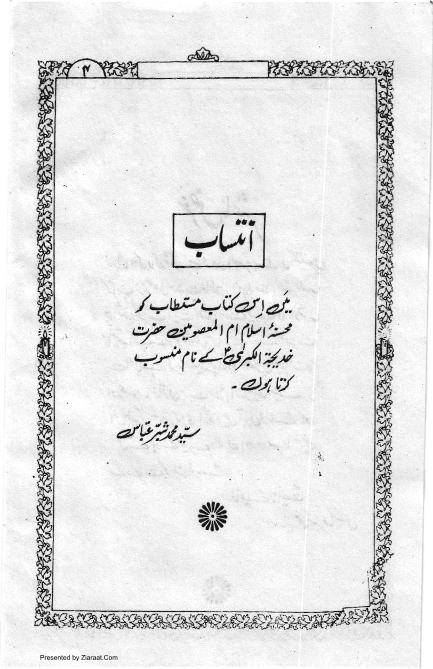 ۴
انتساب
میں اِس کتاب مستطاب کو
محسنۂ اسلام ام المعصومین حضرت
خدیجۃ الکبریٰؑ کے نام منسوب
کرتا ہوں ۔
سیّد محمد شبّر عبّاس
Presented by Ziaraat.Com